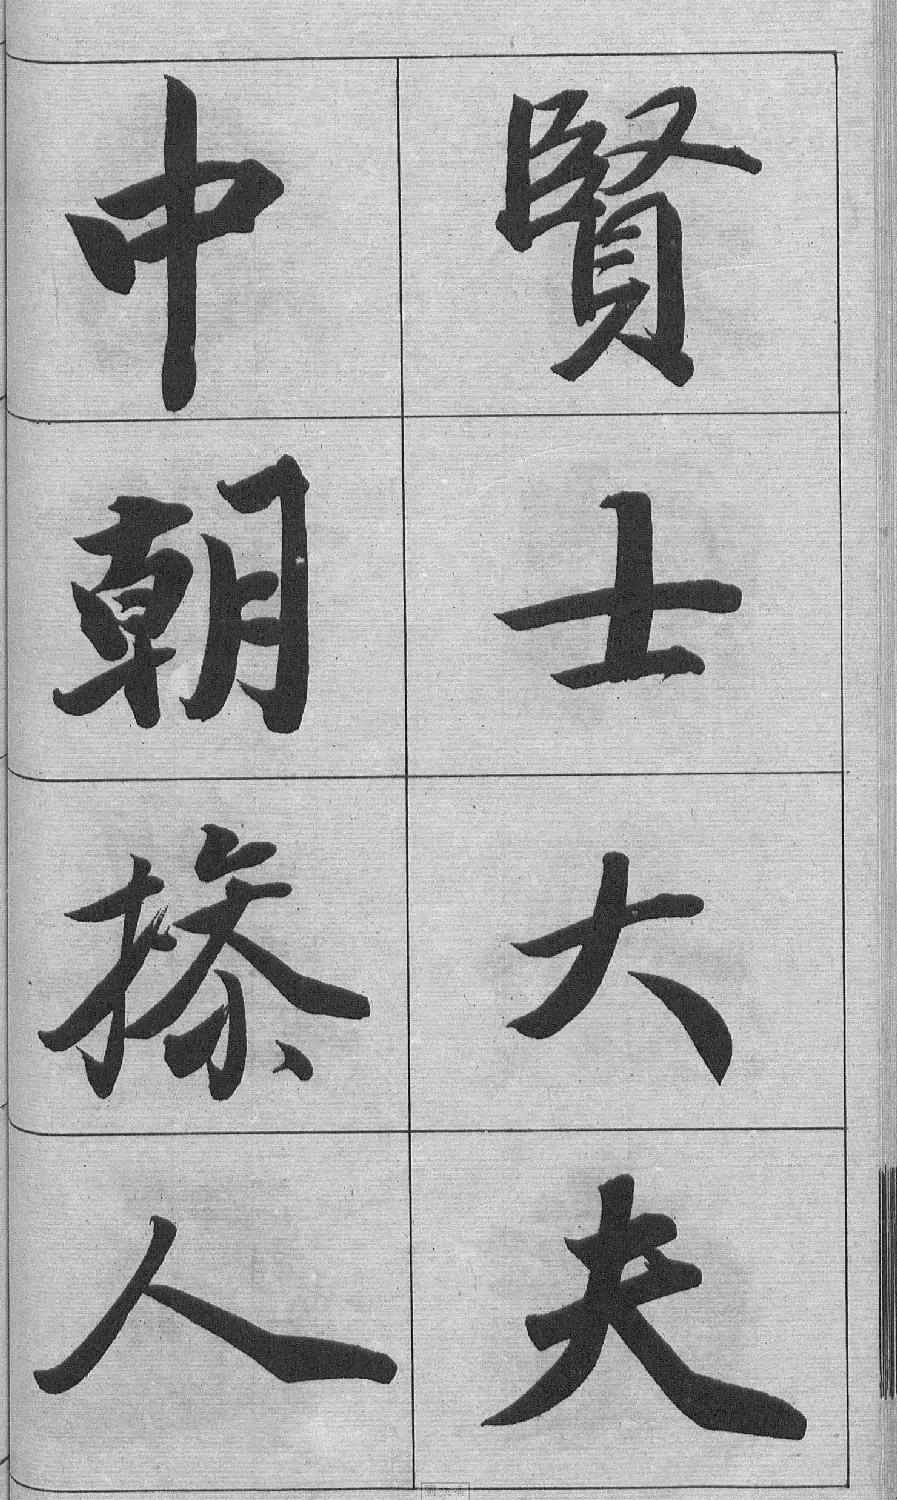 賢士大夫
中朝人